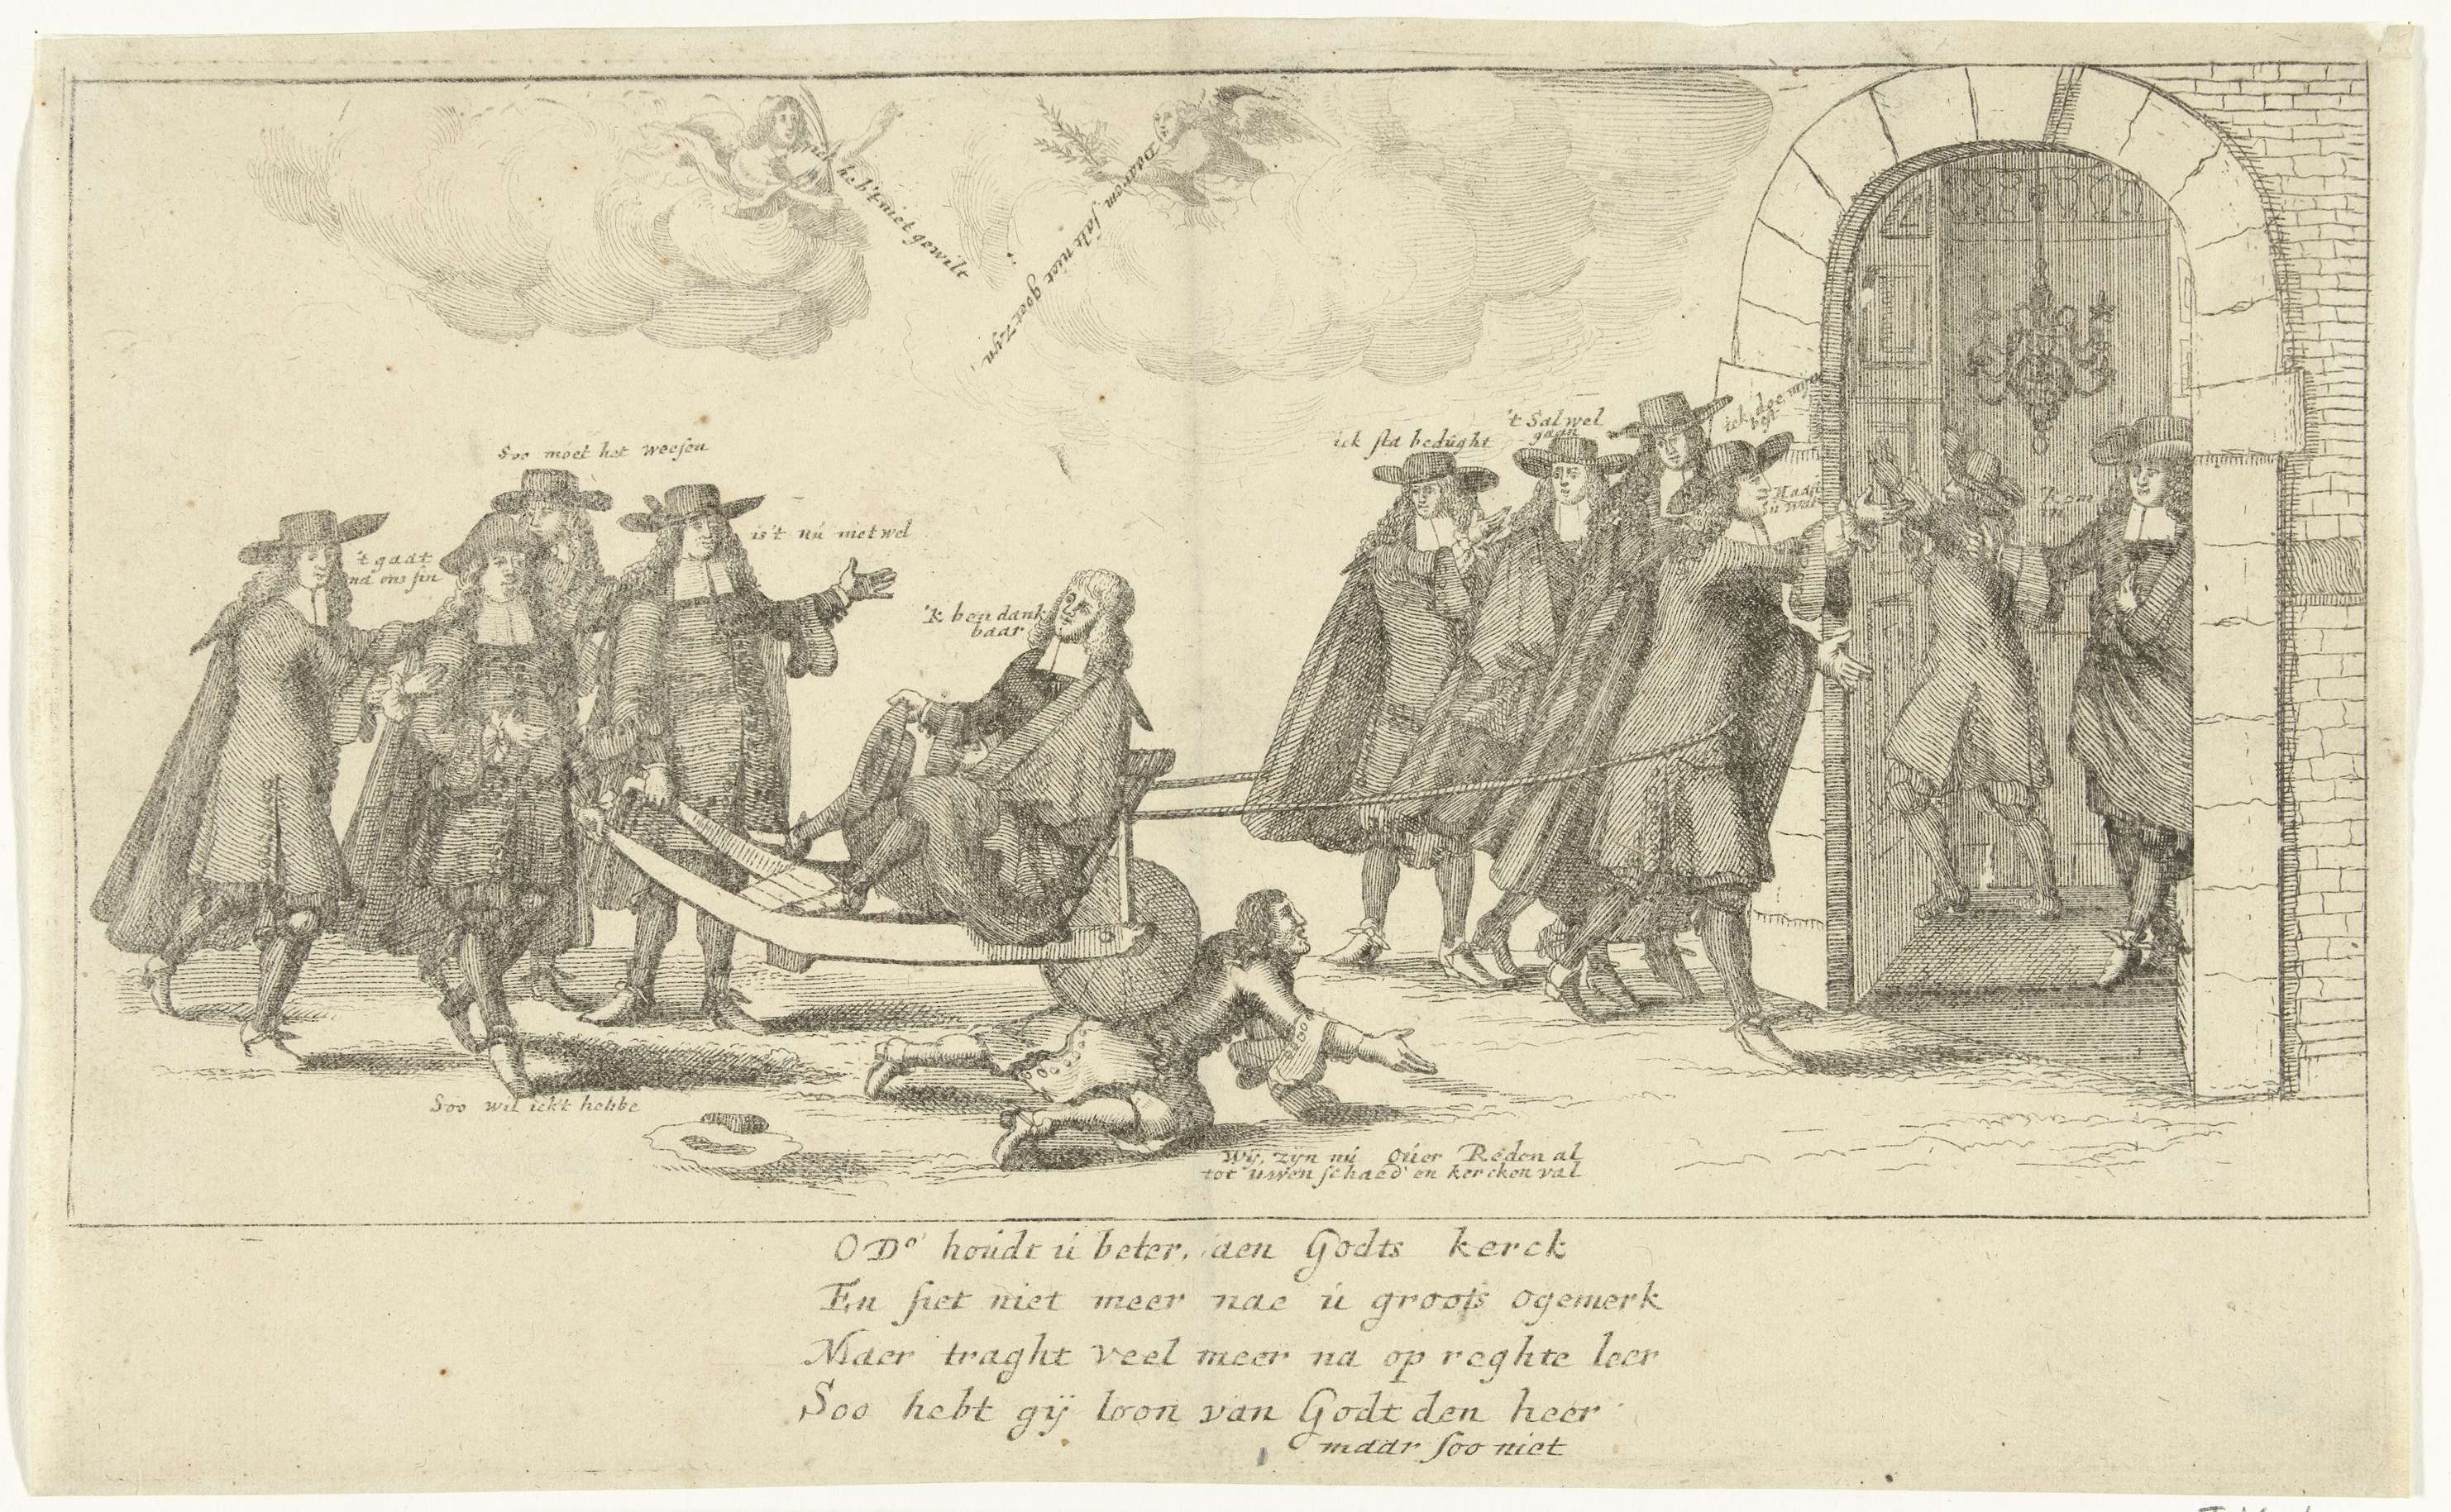 heb't niet gewilt
Daarom salt niet goet zyn
Soo moet het weesen
't gaat
na ons sin
is't nú niet wel
'k ben dank
baar
ick sta bedúght
't Sal wel
gaan
ick doe myn
best
Haast
ú wat
'k om
in
Soo wil ick't hebbe
Wÿ, zÿn nú óúer Reden al
tot uwen schaed en kercken val
O Do houdt ú beter, aen Godts kerck
En siet niet meer nae ú groots ogemerk
Maer traght veel meer na op reghte leer
Soo hebt gÿ loon van Godt den heer
maar soo niet